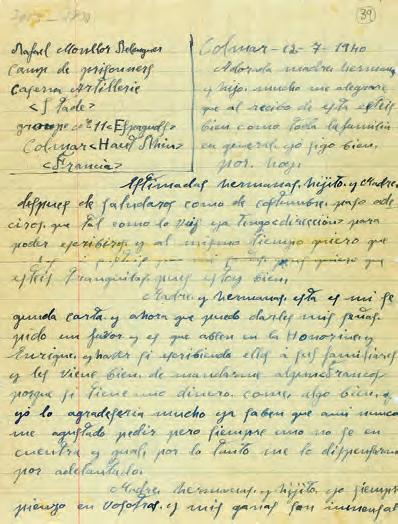 39
Rafael Moullor Belenguer
Camp de prisonners
Caserna Artillerie
groupe cº 11 <Españols>
Colmar <Haud Rhin>
<Francia>
Colmar - 12 - 7 - 1940
Adorada madre, hermanas
y hijo. mucho me alegrare
que al recibo de esta esteis
bien como toda la familia
en general, yo sigo bien,
por hoy.
Estimadas hermanas, hijito, y Madre
despues de saludaros como de costumbre paso a de
ciros, que tal como lo veis ya tengo <direccion> para
poder escribiros, y al mismo tiempo quiero que
esteis tranquilas pues estoy bien.
Madre, y hermanas, esta es mi se
gunda carta, y ahora que puedo darles mis señas,
pido un favor, y es que ablen en la Honorine, y
Enrique, y haver si escribiendo ellos á sus familiares
y les viene bien, de mandarme algunos francos
porque si tiene uno dinero, come, algo bien, y
yo lo agradeseria mucho ya saben que ami nunca
me agustado pedir pero siempre uno se en
cuentra y por lo tanto me lo dispensaran
por adelantado.
Madre, hermanas, y hijito, yo siempre
pienzo en vosotras, y mis ganas son inmensas